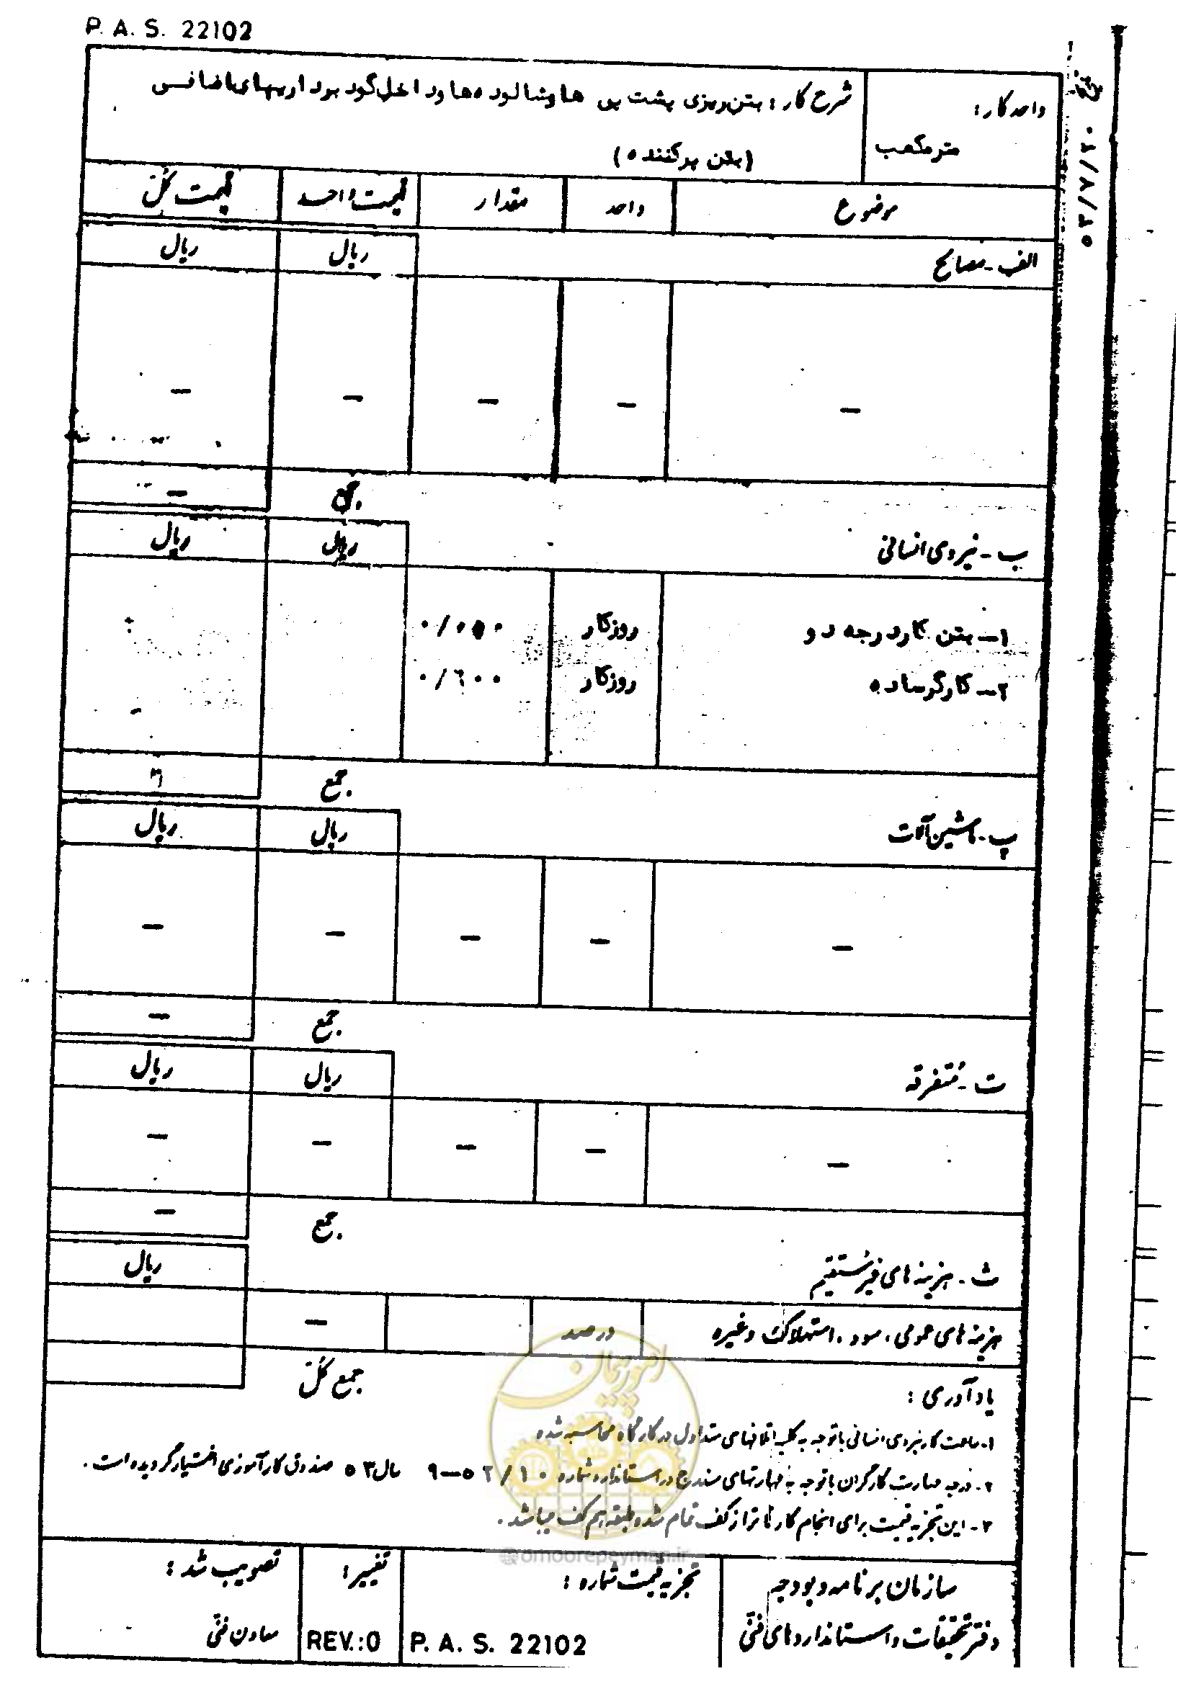 P. A. S. 22102
واحد کار:
مترمکعب
شرح کار: بتن ریزی پشت پی ها و شالوده ها و داخل گود برداریهای اضافی
(بتن پرکننده)
موضوع واحد مقدار قیمت واحد قیمت کل
الف - مصالح ریال ریال
— — — — —
جمع —
ب - نیروی انسانی ریال ریال
۱- بتن کار درجه دو روزکار
۲- کارگر ساده روزکار ۰/۶۰۰
جمع
پ - ماشین آلات ریال ریال
— — — — —
جمع —
ت - متفرقه ریال ریال
— — — — —
جمع —
ث - هزینه های غیرمستقیم ریال
هزینه های عمومی، سود، استهلاک وغیره درصد —
جمع کل
یادآوری:
۱- ساعت کار نیروی انسانی با توجه به کلیه اتلافهای متداول در کارگاه محاسبه شده
۲- درجه مهارت کارگران با توجه به مهارتهای مندرج در استاندارد شماره سال ۵۳ صندوق کارآموزی اختیار گردیده است.
۳- این تجزیه قیمت برای انجام کار تا تراز کف تمام شده طبقه هم کف میباشد.
امور پیمان
@omoorepeyman.ir
سازمان برنامه و بودجه
دفتر تحقیقات و استانداردهای فنی
تجزیه قیمت شماره:
P. A. S. 22102
تغییر:
REV.:0
تصویب شد:
معاون فنی
۵۳/۷/۲۰